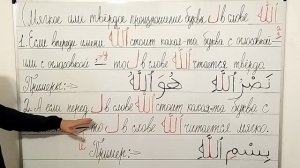 (Мягкое или твёрдое произношение буквы ل в слове اَللّٰهُ
1. Если впереди имени اَللّٰهُ стоит какая-то буква с огласовкой
или с огласовкой то ل в слове اَللّٰهُ читается твёрдо.
Примеры: هُوَ اللّٰهُ نَصْرُ اللّٰهِ
2. А если перед ل в слове اَللّٰهُ стоит какая-то буква с
то ل в слове اَللّٰهُ читается мягко.
Пример: بِسْمِ اللّٰهِ